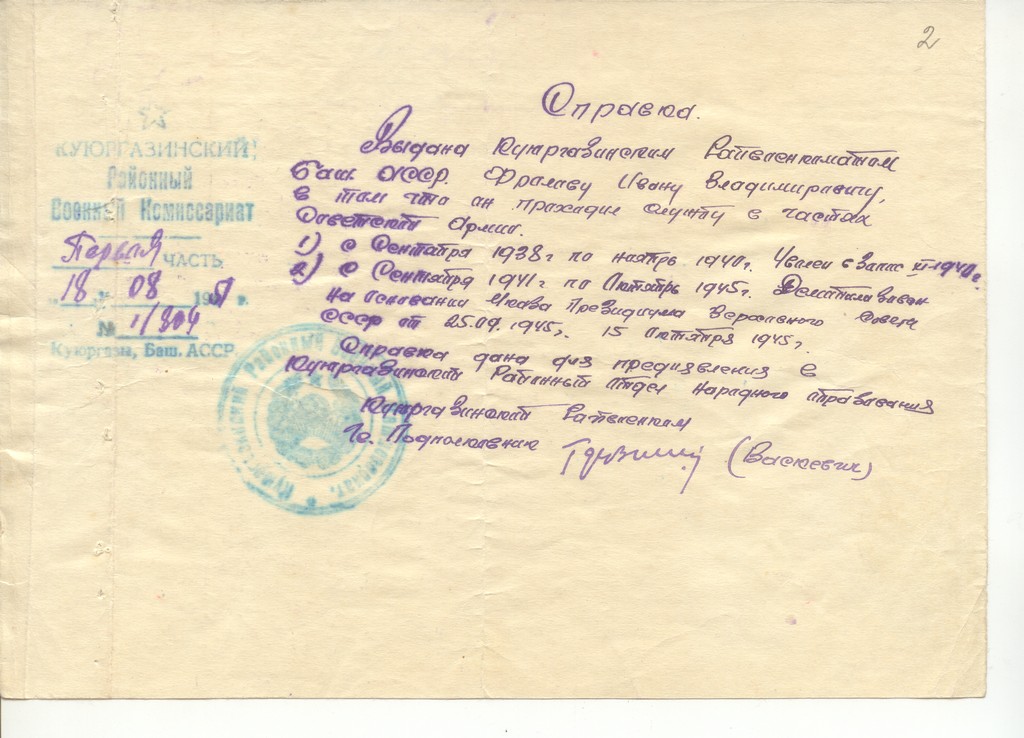 2
Справка.
КУЮРГАЗИНСКИЙ
Районный
Военный Комиссариат
Первая ЧАСТЬ
"18" 08 1951 г.
№ 1/804
Куюргазы, Баш. АССР.
Выдана Куюргазинским Райвоенкоматом
Баш АССР. Фролову Ивану Владимировичу,
в том что он проходил службу в частях
Советской Армии.
1) с Сентября 1938 г по ноябрь 1940 г. Уволен в Запас XI-1940 г.
2) с Сентября 1941 г по Октябрь 1945 г. Демобилизован
на основании Указа Президиума Верховного Совета
СССР от 25.09.1945 г. 15 Октября 1945 г.
Справка дана для предиявления в
Куюргазинский Районный Отдел Народного Образования
Куюргазинский Райвоенком
Гв. Подполковник (Васкевич)